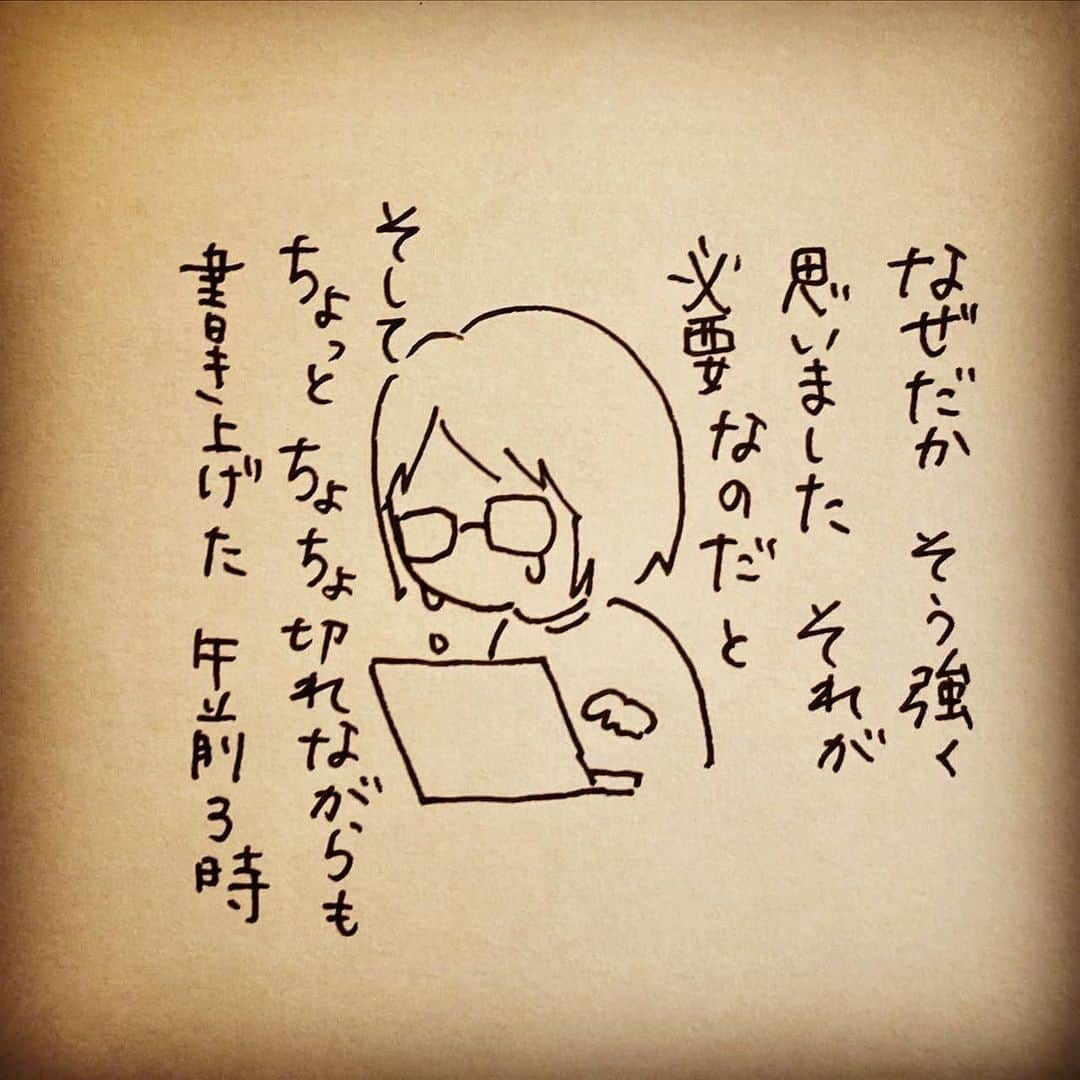 なぜだか そう強く
思いました それが
必要なのだと
そして
ちょっと ちょちょ切れながらも
書き上げた 午前3時